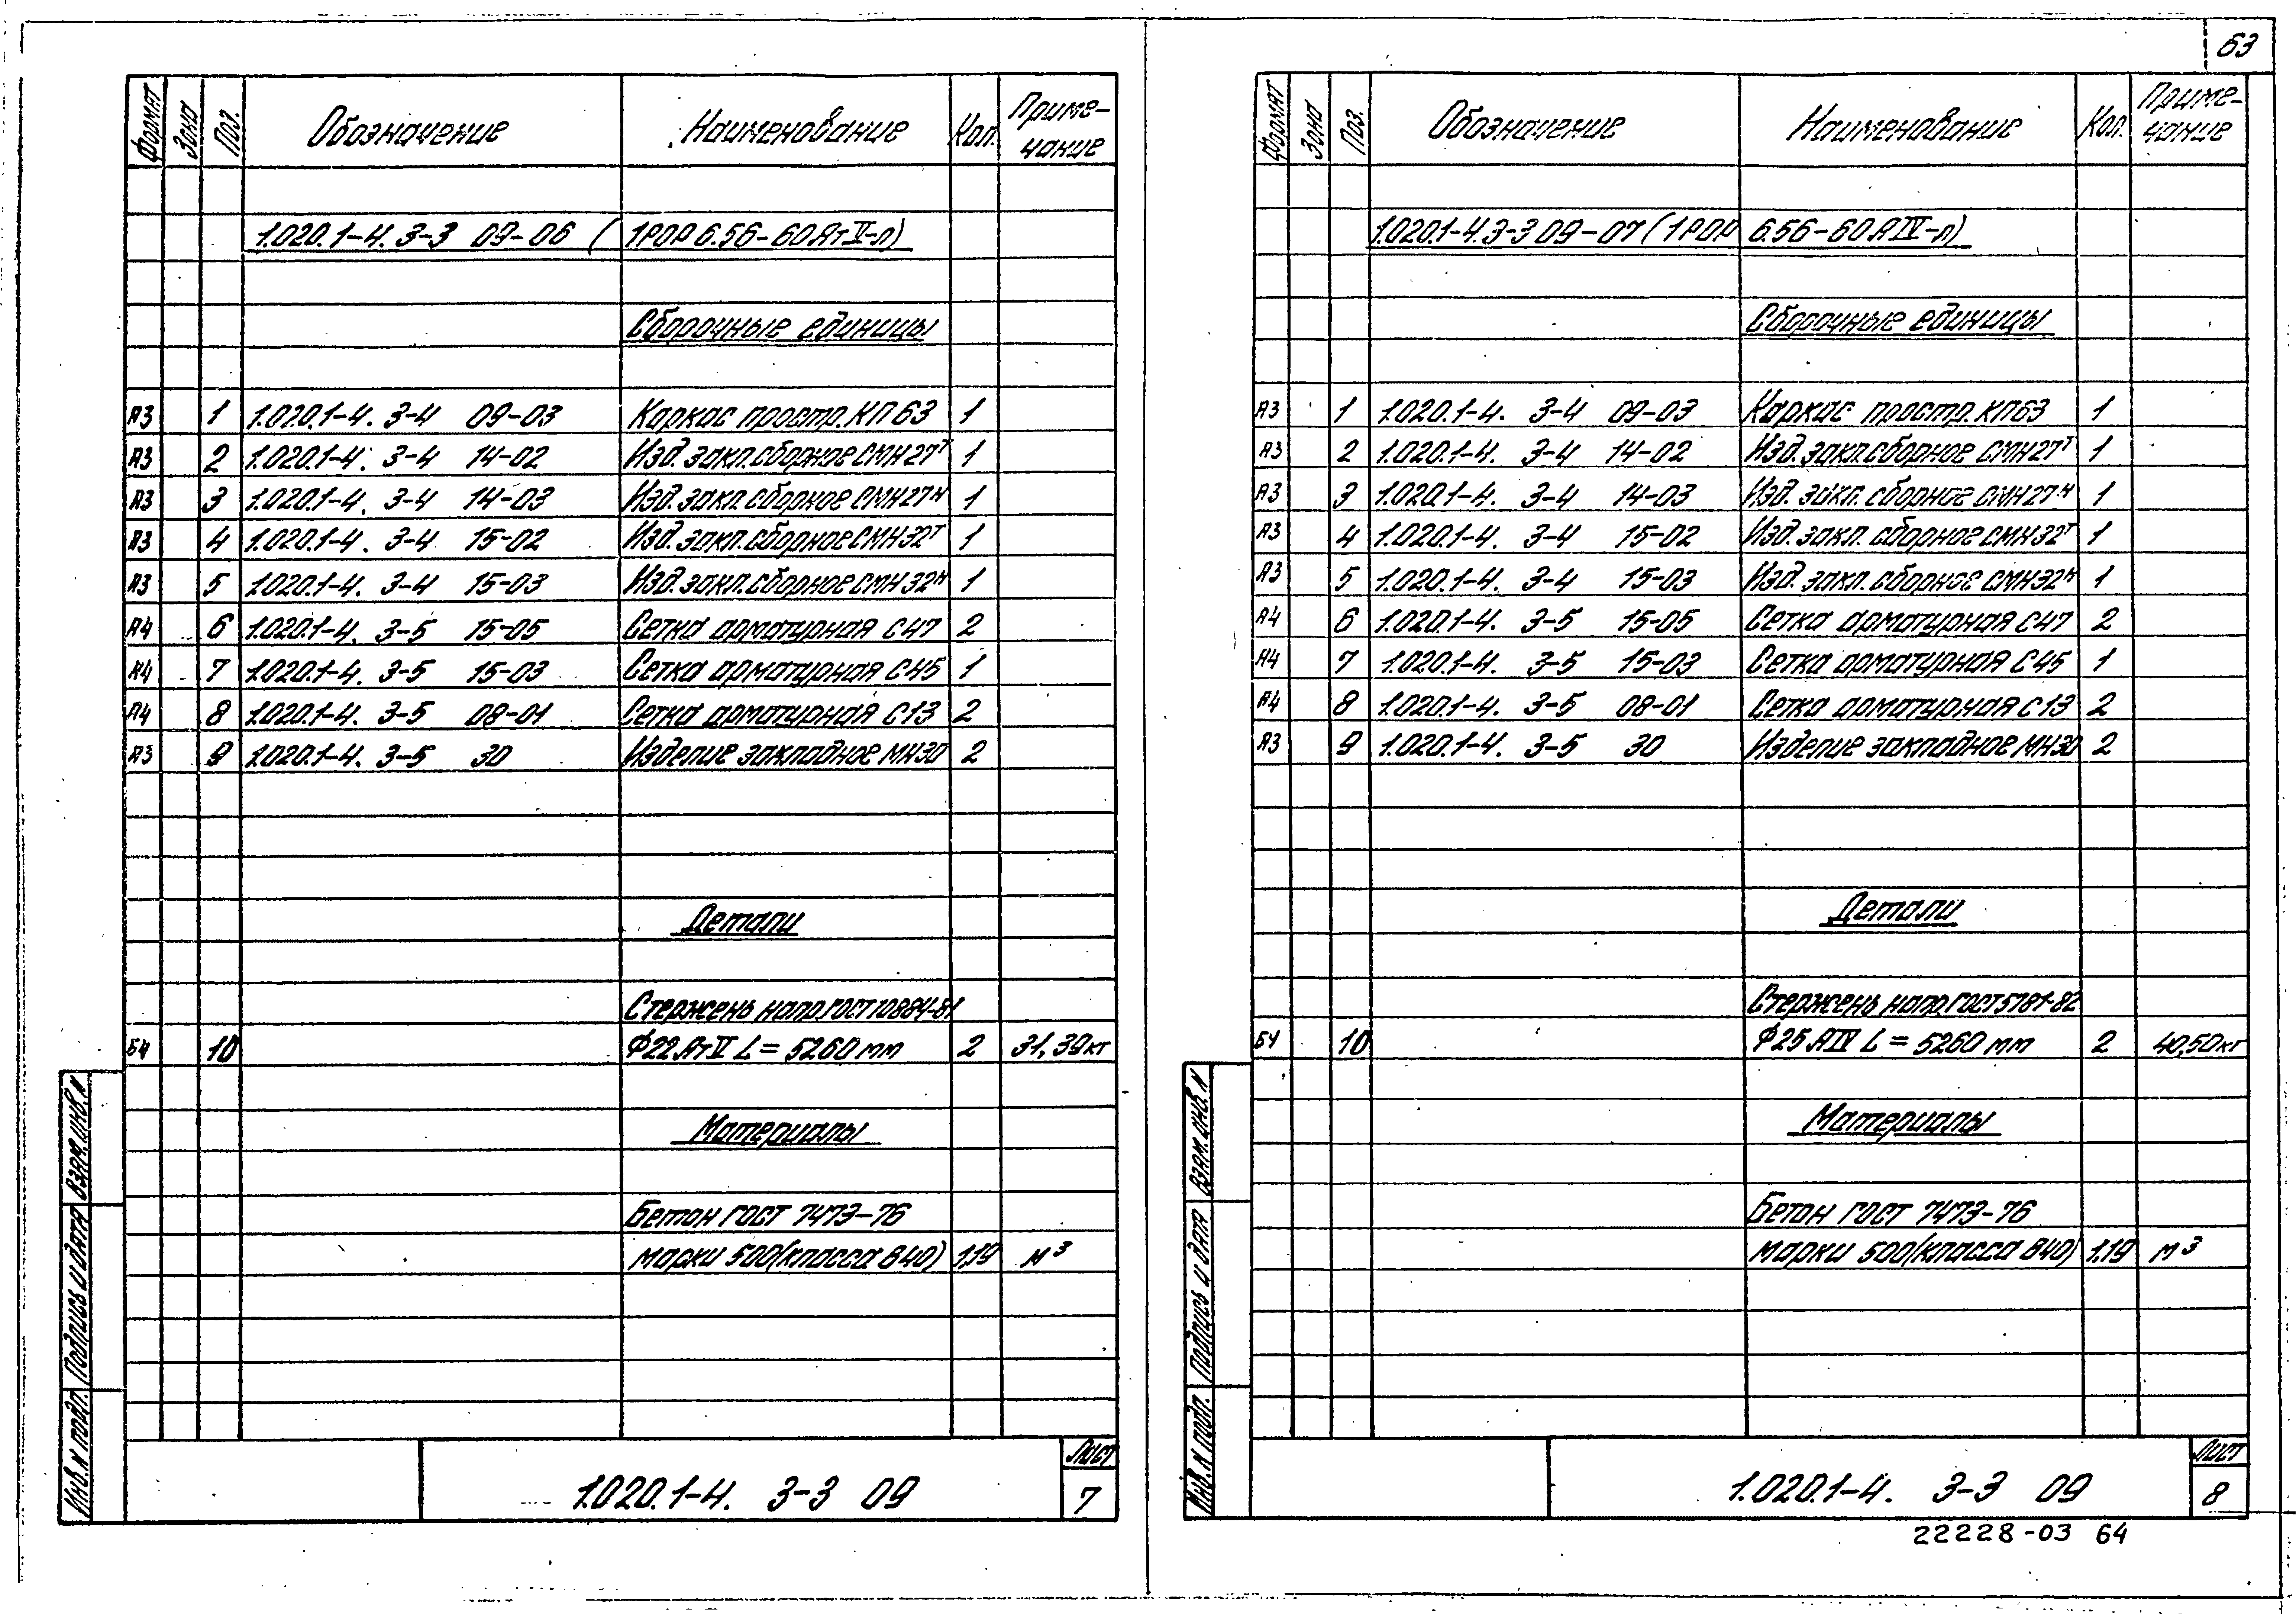 63
Формат Зона Поз. Обозначение Наименование Кол. Приме-
чание
1.020.1-4. 3-3 09-06 (1РОР 6.56-60АтV-п)
Сборочные единицы
А3 1 1.020.1-4. 3-4 09-03 Каркас простр. КП63 1
А3 2 1.020.1-4. 3-4 14-02 Изд. закл. сборное СМН27т 1
А3 3 1.020.1-4. 3-4 14-03 Изд. закл. сборное СМН27н 1
А3 4 1.020.1-4. 3-4 15-02 Изд. закл. сборное СМН32т 1
А3 5 1.020.1-4. 3-4 15-03 Изд. закл. сборное СМН32н 1
А4 6 1.020.1-4. 3-5 15-05 Сетка арматурная С47 2
А4 7 1.020.1-4. 3-5 15-03 Сетка арматурная С45 1
А4 8 1.020.1-4. 3-5 08-01 Сетка арматурная С13 2
А3 9 1.020.1-4. 3-5 30 Изделие закладное МН30 2
Детали
Стержень напр. ГОСТ 10884-81
Б4 10 Ф22 АтV L = 5260 мм 2 31,39кг
Материалы
Бетон ГОСТ 7473-76
марки 500 (класса В40) 1.19 м³
Инв. N подл. Подпись и дата Взам. инв. N
1.020.1-4. 3-3 09
Лист
7
Формат Зона Поз. Обозначение Наименование Кол. Приме-
чание
1.020.1-4. 3-3 09-07 (1РОР 6.56-60АIV-п)
Сборочные единицы
А3 1 1.020.1-4. 3-4 09-03 Каркас простр. КП63 1
А3 2 1.020.1-4. 3-4 14-02 Изд. закл. сборное СМН27т 1
А3 3 1.020.1-4. 3-4 14-03 Изд. закл. сборное СМН27н 1
А3 4 1.020.1-4. 3-4 15-02 Изд. закл. сборное СМН32т 1
А3 5 1.020.1-4. 3-4 15-03 Изд. закл. сборное СМН32н 1
А4 6 1.020.1-4. 3-5 15-05 Сетка арматурная С47 2
А4 7 1.020.1-4. 3-5 15-03 Сетка арматурная С45 1
А4 8 1.020.1-4. 3-5 08-01 Сетка арматурная С13 2
А3 9 1.020.1-4. 3-5 30 Изделие закладное МН30 2
Детали
Стержень напр. ГОСТ 5781-82
Б4 10 Ф25 АIV L = 5260 мм 2 40,50кг
Материалы
Бетон ГОСТ 7473-76
марки 500 (класса В40) 1.19 м³
Инв. N подл. Подпись и дата Взам. инв. N
1.020.1-4. 3-3 09
Лист
8
22228-03 64